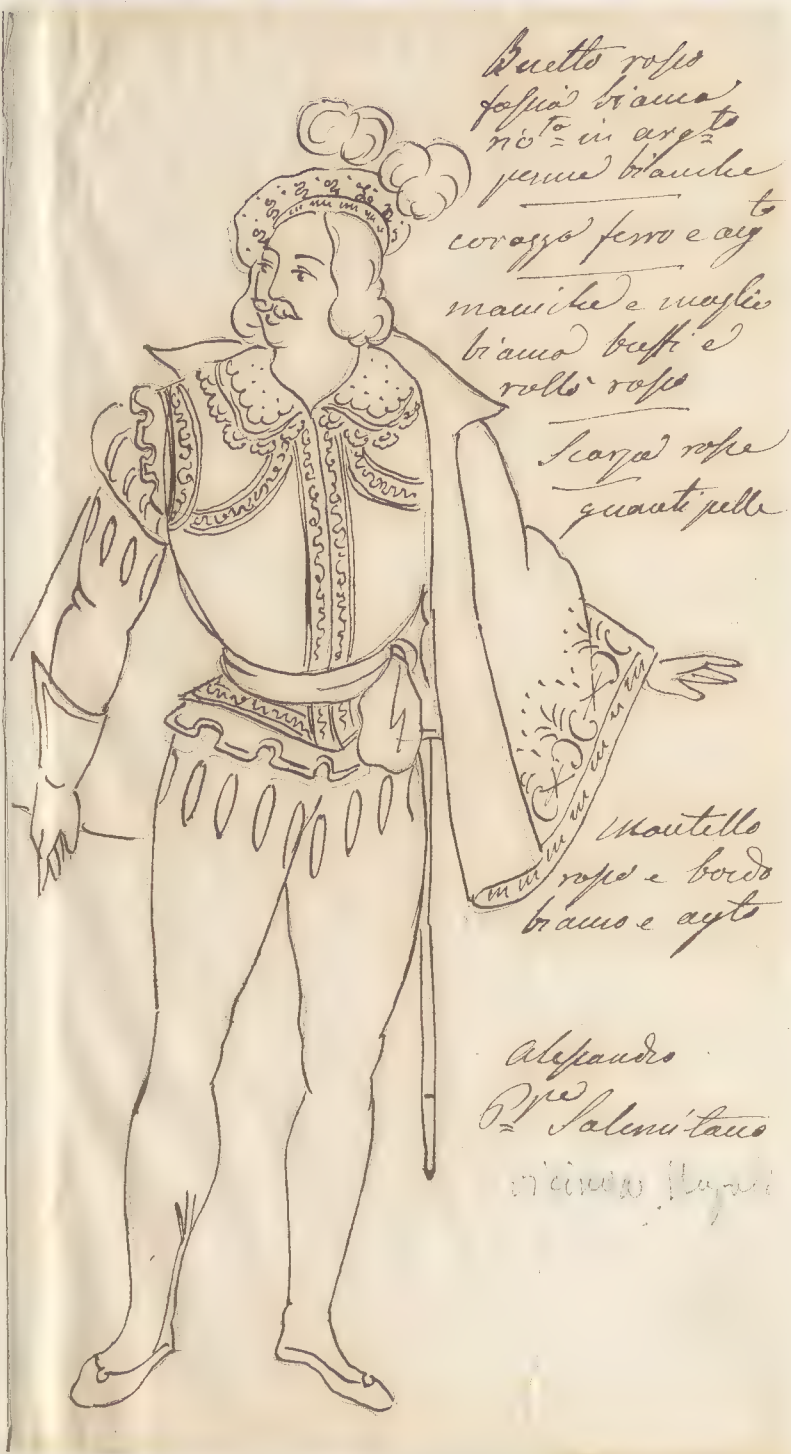 Buetto rosso
fascia bianca
ric.to in arg.to
penne bianche
corazza ferro e arg.to
maniche e maglie
bianco buffi e
rollò rosso
Scarpa rosse
guanti pelle
Mantello
rosso e bordo
bianco e arg.to
Alessandro
P.pe Salernitano
vicino a Napoli